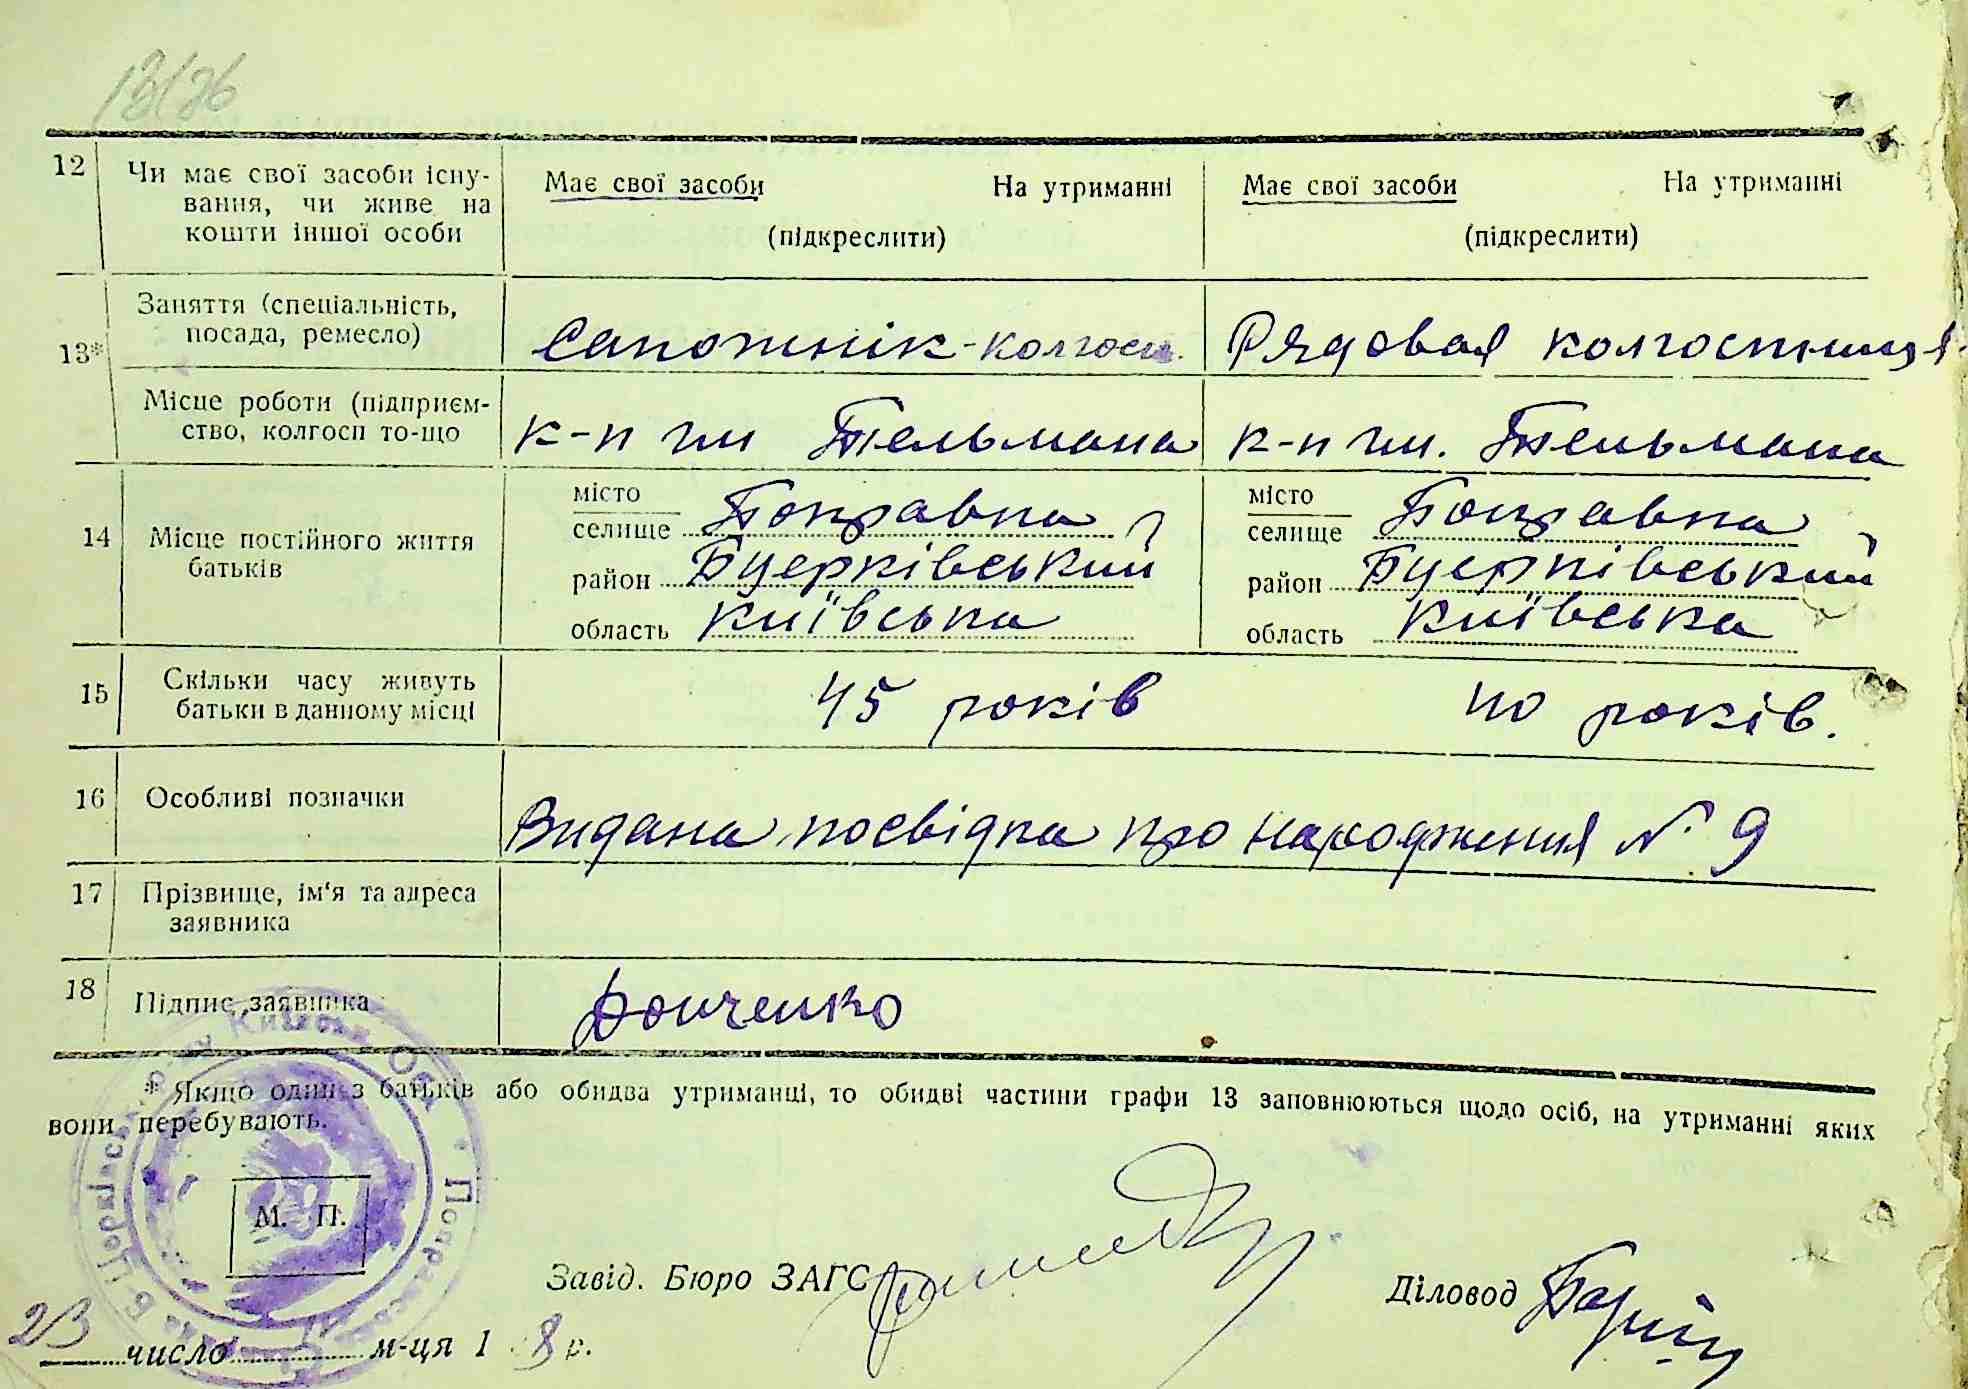 13/26
12 Чи має свої засоби існу-
вання, чи живе на
кошти іншої особи
Має свої засоби На утриманні
(підкреслити)
Має свої засоби На утриманні
(підкреслити)
13* Заняття (спеціальність,
посада, ремесло)
Сапожнік-колгосп.
Рядовая колгоспниця
Місце роботи (підприєм-
ство, колгосп то-що
к-п ім Тельмана
к-п ім. Тельмана
14 Місце постійного життя
батьків
місто
селище
район Бцерківський
область Київська
місто
селище
район Бцерківський
область Київська
15 Скільки часу живуть
батьки в данному місці
45 років
40 років.
16 Особливі позначки
Видана посвідка про народження № 9
17 Прізвище, ім'я та адреса
заявника
18 Підпис заявника
Донченко
* Якщо один з батьків або обидва утриманці, то обидві частини графи 13 заповнюються щодо осіб, на утриманні яких
вони перебувають.
М. П.
Завід. Бюро ЗАГС
Діловод
23 число м-ця 1 8 р.